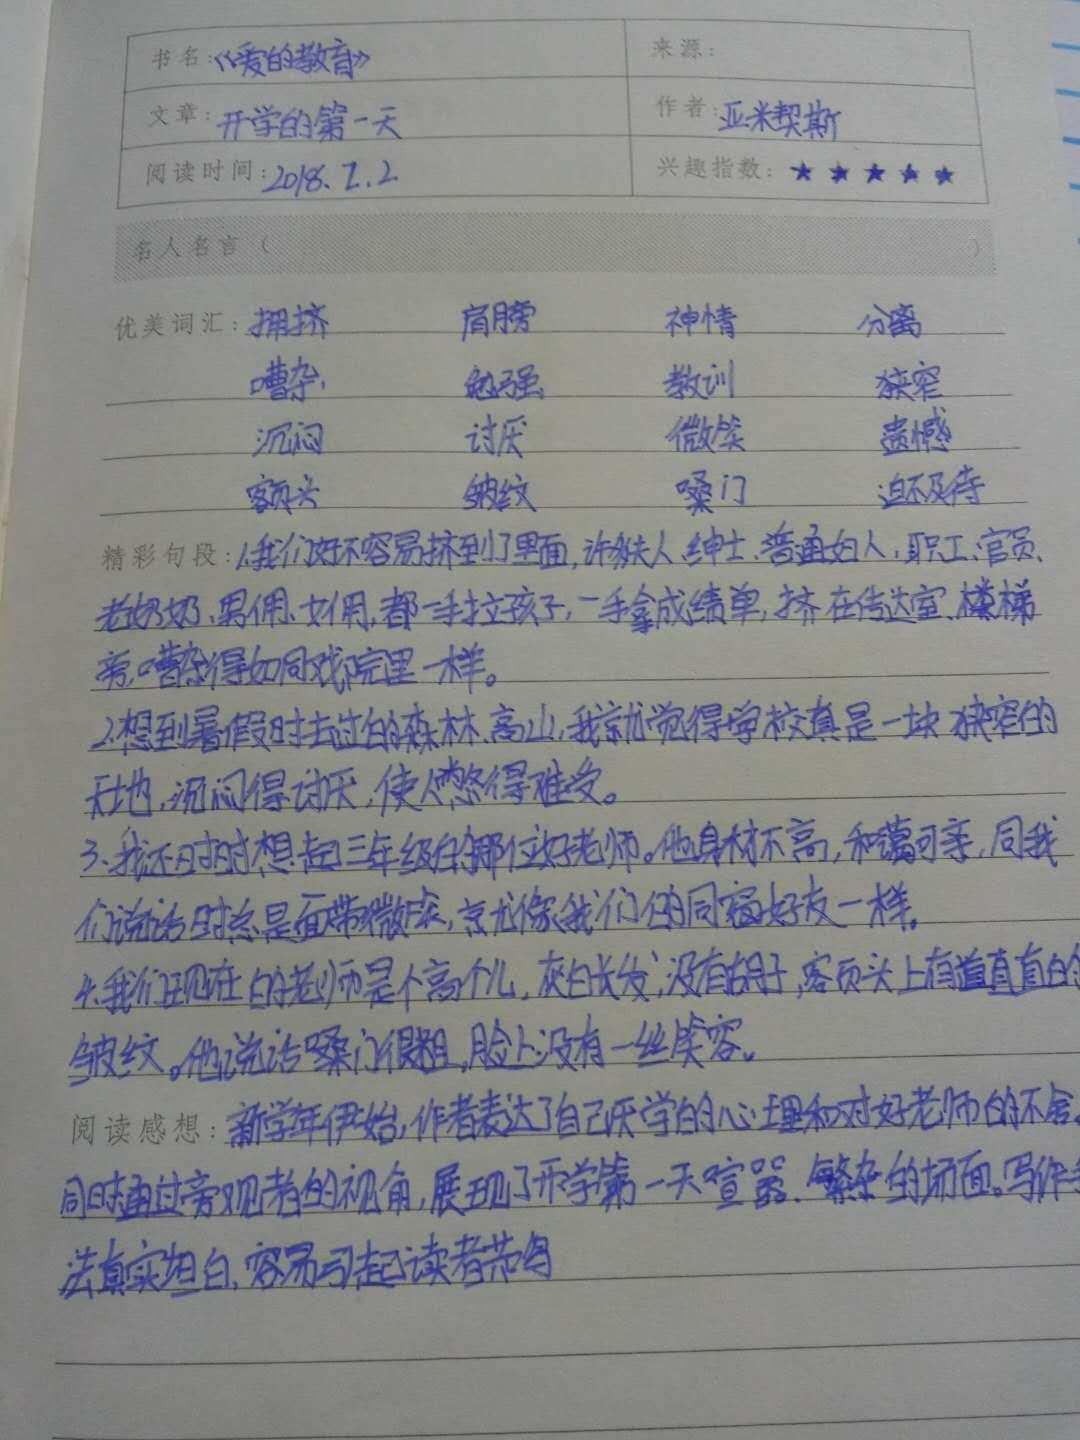 书名:《爱的教育》 来源:
文章:开学的第一天 作者:亚米契斯
阅读时间:2018.7.2 兴趣指数:★★★★★
名人名言( )
优美词汇:拥挤 肩膀 神情 分离
嘈杂 勉强 教训 狭窄
沉闷 讨厌 微笑 遗憾
额头 皱纹 嗓门 迫不及待
精彩句段:1.我们好不容易挤到了里面,许多夫人、绅士、普通妇人、职工、官员、
老奶奶、男佣、女佣,都一手拉孩子,一手拿成绩单,挤在传达室、楼梯
旁,嘈杂得如同戏院里一样。
2.想到暑假时去过的森林、高山,我就觉得学校真是一块狭窄的
天地,沉闷得讨厌,使人憋得难受。
3.我还时时想起三年级的那位好老师。他身材不高,和蔼可亲,同我
们说话时总是面带微笑,就像我们的同窗好友一样。
4.我们现在的老师是个高个儿,灰白长发,没有胡子,额头上有道直直的
皱纹。他说话嗓门很粗,脸上没有一丝笑容。
阅读感想:新学年伊始,作者表达了自己厌学的心理和对好老师的不舍。
同时通过旁观者的视角,展现了开学第一天喧嚣、繁杂的场面。写作手
法真实坦白、容易引起读者共鸣